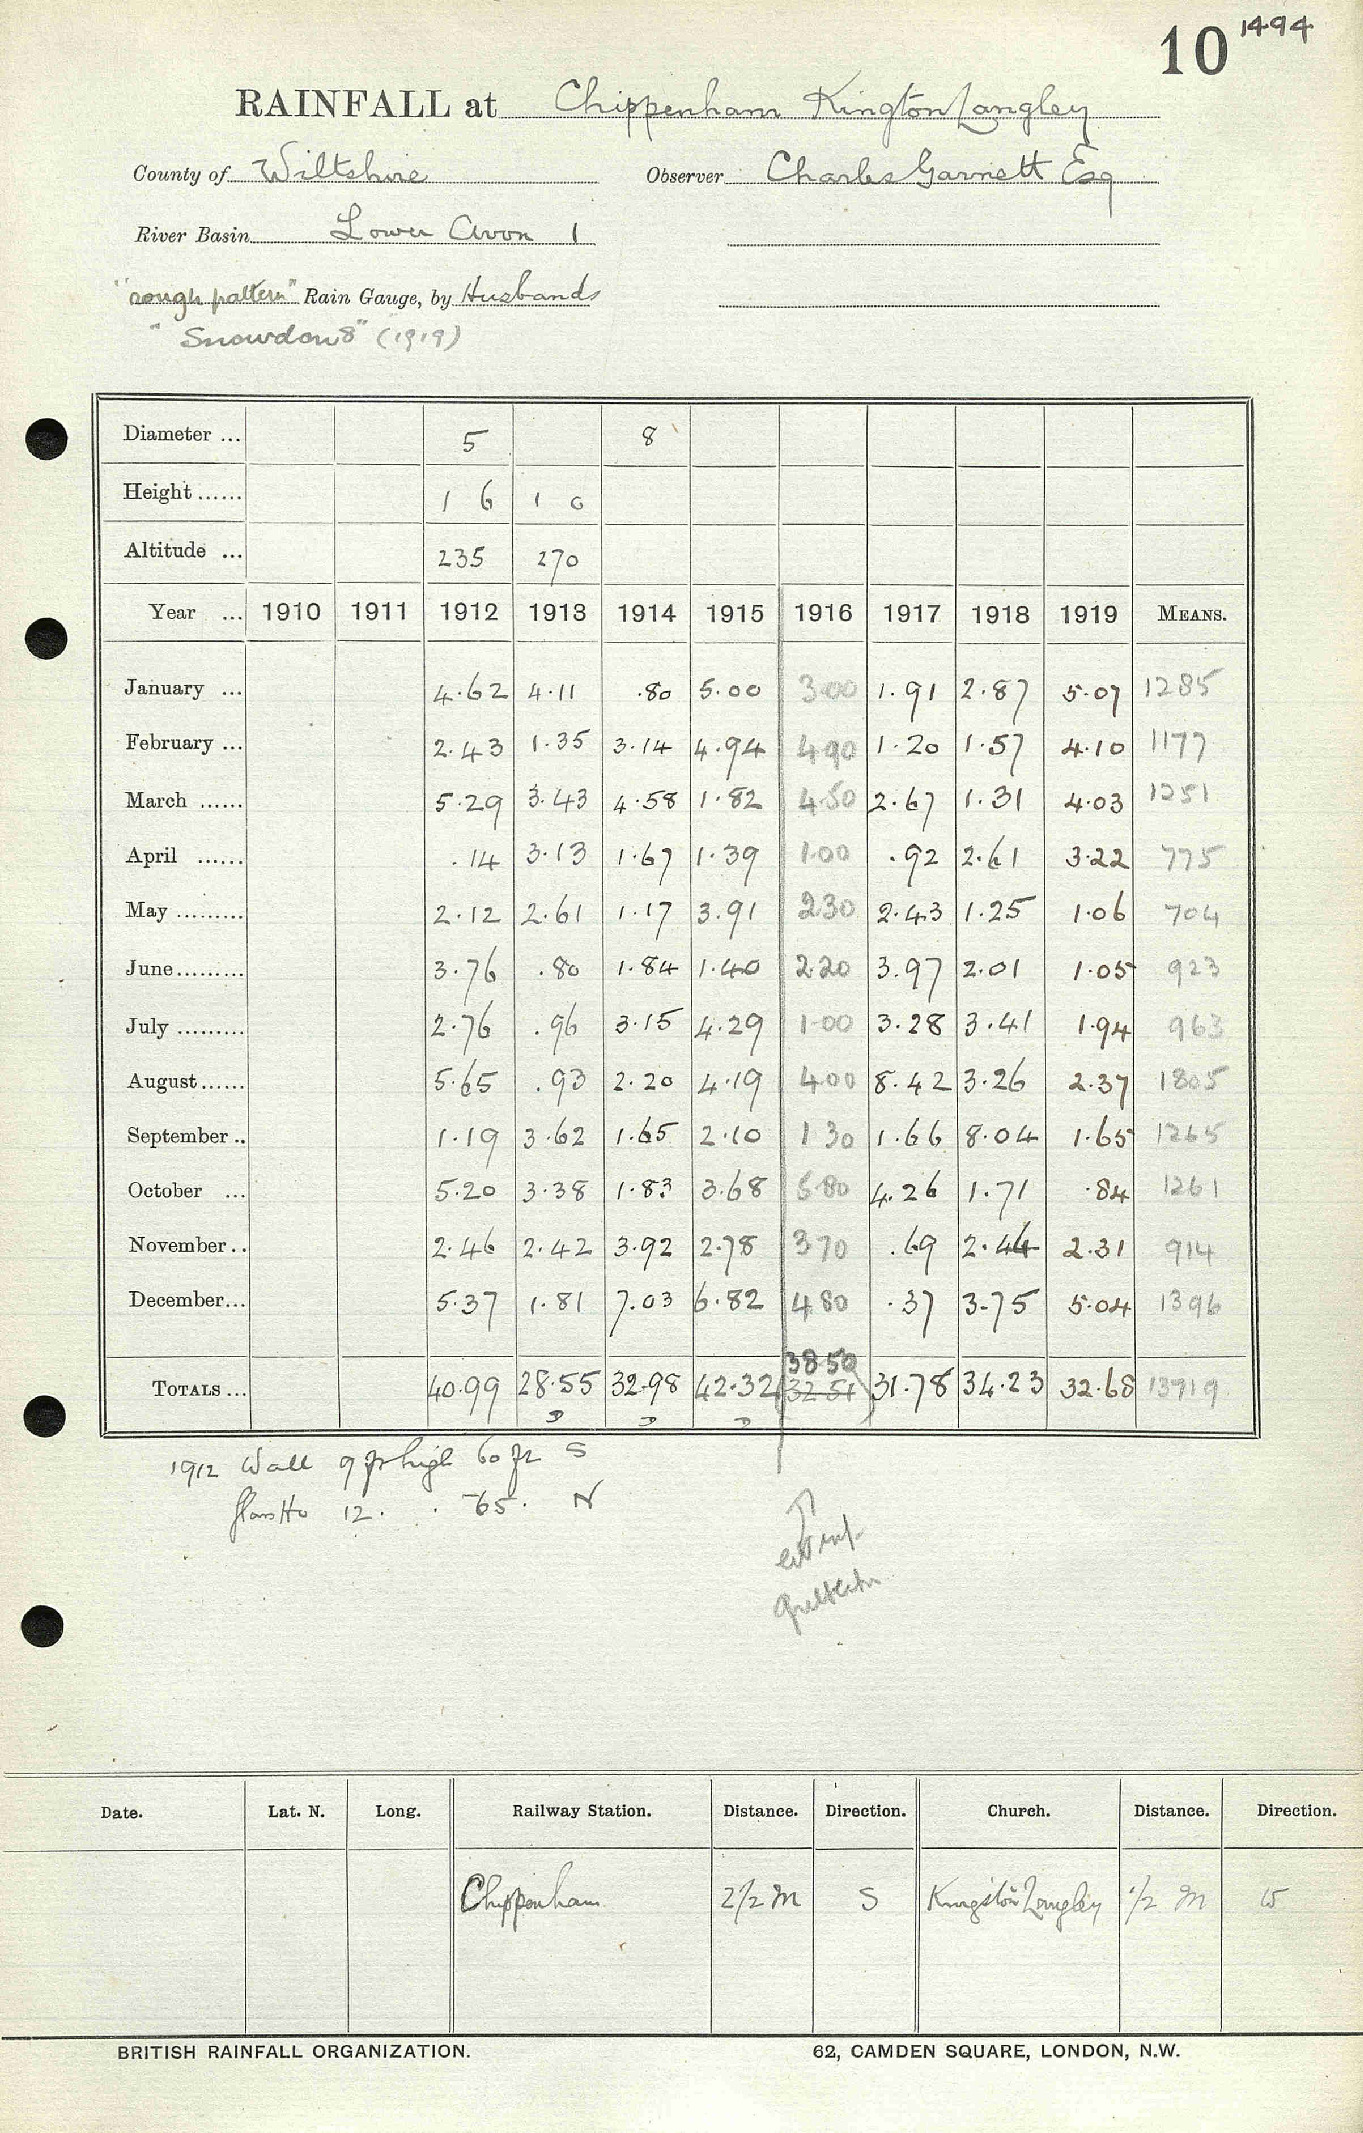 10 1494
RAINFALL at Chippenham Kington Langley
County of Wiltshire Observer Charles Garnett Esq
River Basin Lower Avon 1
"rough pattern" Rain Gauge, by Husbands
"Snowdon 8" (1919)
Diameter ... 5 8
Height ...... 1 6 1 0
Altitude ... 235 270
Year ... 1910 1911 1912 1913 1914 1915 1916 1917 1918 1919 MEANS.
January ... 4.62 4.11 .80 5.00 3.00 1.91 2.87 5.07 1285
February ... 2.43 1.35 3.14 4.94 4.90 1.20 1.57 4.10 1177
March ...... 5.29 3.43 4.58 1.82 4.50 2.67 1.31 4.03 1251
April ...... .14 3.13 1.67 1.39 1.00 .92 2.61 3.22 775
May ......... 2.12 2.61 1.17 3.91 2.30 2.43 1.25 1.06 704
June ......... 3.76 .80 1.84 1.40 2.20 3.97 2.01 1.05 923
July ......... 2.76 .96 3.15 4.29 1.00 3.28 3.41 1.94 963
August ...... 5.65 .93 2.20 4.19 4.00 8.42 3.26 2.37 1805
September .. 1.19 3.62 1.65 2.10 1.30 1.66 8.04 1.65 1265
October ... 5.20 3.38 1.83 3.68 5.80 4.26 1.71 .84 1261
November .. 2.46 2.42 3.92 2.78 3.70 .69 2.44 2.31 914
December ... 5.37 1.81 7.03 6.82 4.80 .37 3.75 5.04 1396
38.50
TOTALS ... 40.99 28.55 32.98 42.32 (32.51) 31.78 34.23 32.68 13919
D D D
1912 Wall 9 ft high 60 ft S
12 . . 65 . N
Date. Lat. N. Long. Railway Station. Distance. Direction. Church. Distance. Direction.
Chippenham 2 1/2 M S Kington Langley 1/2 M W
BRITISH RAINFALL ORGANIZATION. 62, CAMDEN SQUARE, LONDON, N.W.